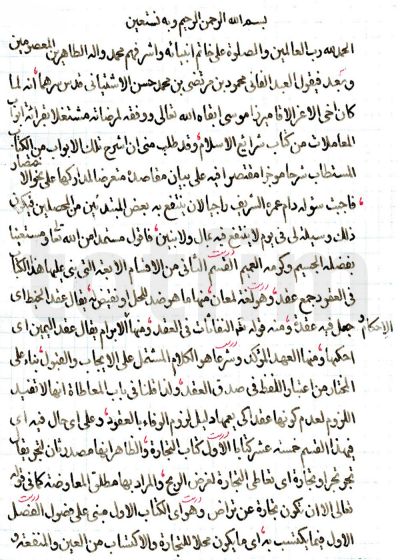 بسم الله الرحمن الرحیم وبه نستعین
الحمد لله رب العالمین والصلوة علی خاتم انبیائه واشرفهم محمد واله الطاهرین المعصومین
وبعد فیقول العبد الفانی محمود بن مرتضی بن محمد حسن الاشتیانی قدس سرها انه لما
کان اخی الاعز الاقا میرزا موسی ابقاه الله تعالی ووفقه لمرضاته مشتغلا بقرائة ابواب
المعاملات من کتاب شرائع الاسلام وقد طلب منی ان اشرح تلک الابواب من الکتاب
المستطاب شرحا موجزا مقتصرا فیه علی بیان مقاصده متعرضا لمدارکها علی نحو الاختصار
فاجبت سؤله دام عمره الشریف راجیا لان ینتفع به بعض المبتدئین من المحصلین فیکون
ذلک وسیلة لی فی یوم لا ینفع فیه مال ولا بنین فاقول مستمدا من الله تعالی ومستعینا
بفضله الجسیم وکرمه العمیم القسم الثانی من الاقسام الاربعة التی بنی علیها هذا الکتاب
فی العقود جمع عقد وهو لغة لمعان منها ما هو ضد للحل ونقیض له یقال عقد الخیط ای
جعل فیه عقدة ومنه قوله تعالی النفاثات فی العقد ومنها الابرام یقال عقد الیمین ای
الاحکام و
احکمها ومنها العهد المؤکد وشرعا هو الکلام المشتمل علی الایجاب والقبول بناء علی
المختار من اعتبار اللفظ فی صدق العقد ولذا قلنا فی باب المعاطاة انها لا تفید
اللزوم لعدم کونها عقدا کی یعمها دلیل لزوم الوفاء بالعقود وعلی ای حال فیه ای
فی هذا القسم خمسة عشر کتابا الاول کتاب التجارة والظاهر انها مصدر ثان لتجر یقال
تجر تجرا وتجارة ای تعاطی التجارة لغرض الربح والمراد بها مطلق المعاوضة کما فی قوله
تعالی الا ان تکون تجارة عن تراض وهو ای الکتاب الاول مبنی علی فصول الفصل
الاول فیما یکتسب به ای ما یکون محلا للتجارة والاکتساب من العین والمنفعة و